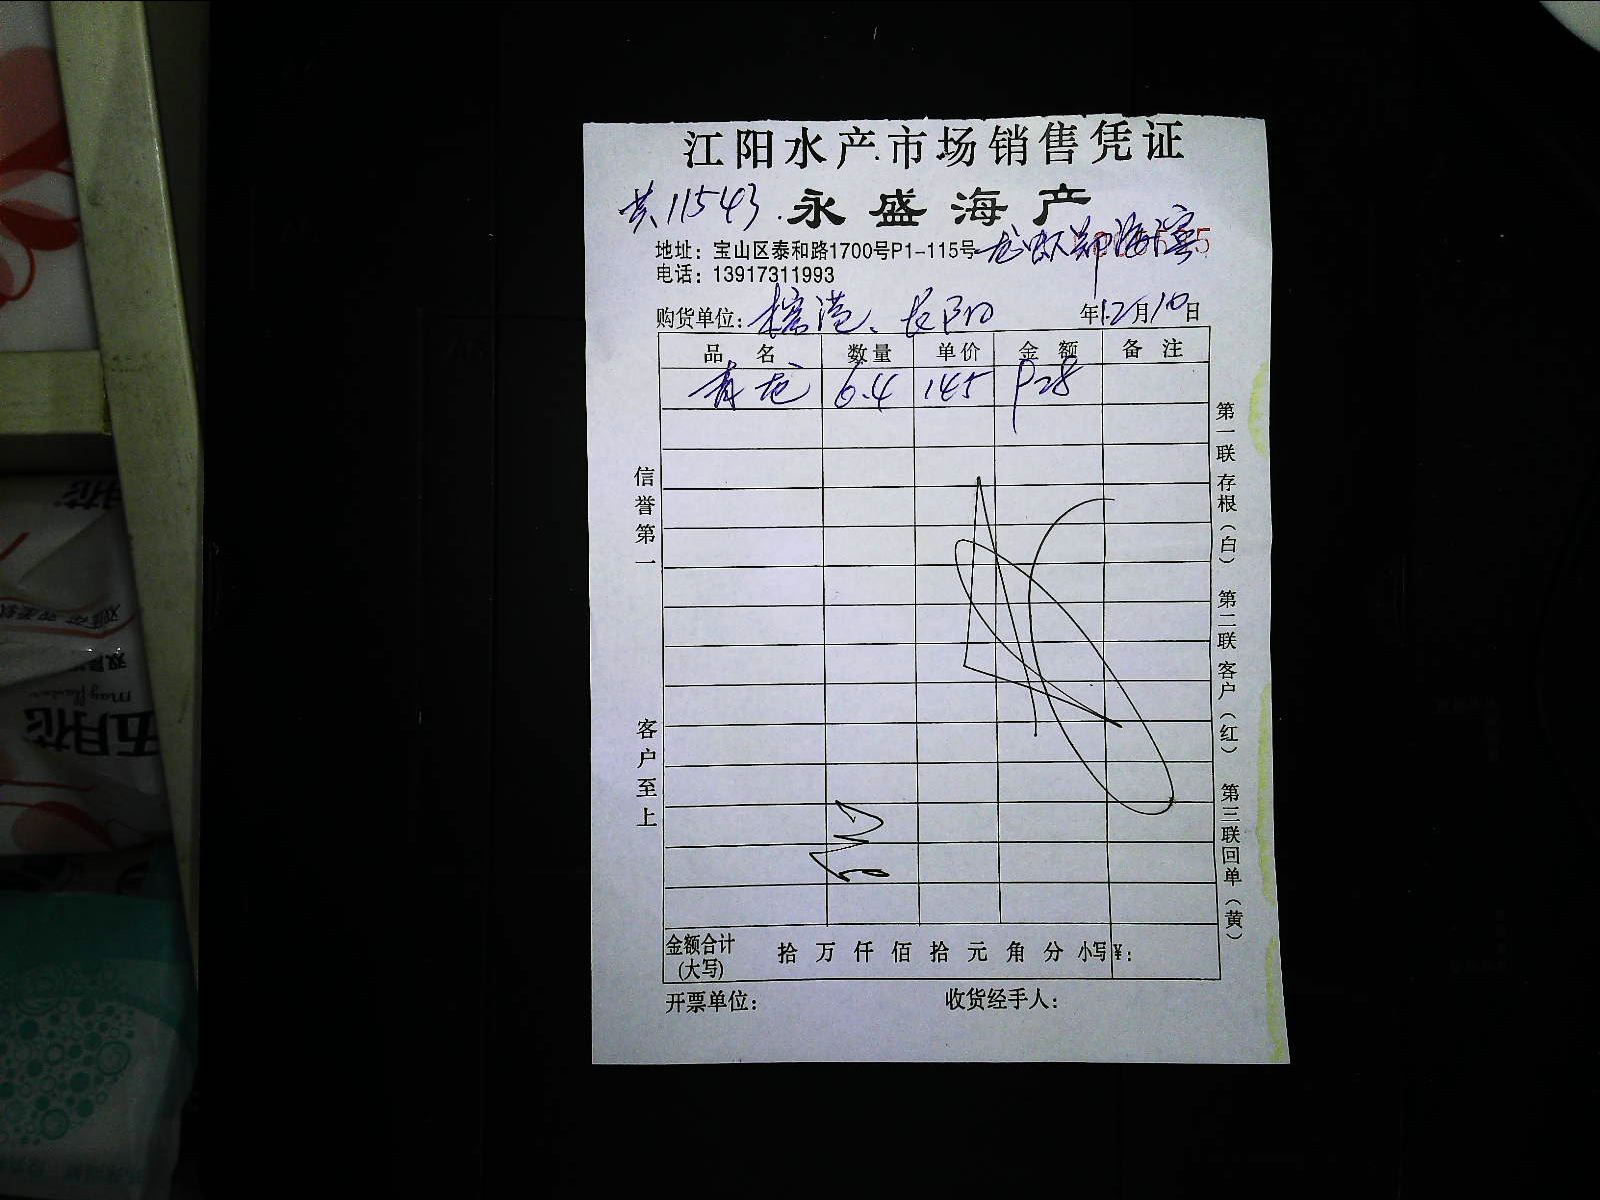 江阳水产市场销售凭证
共11543. 永盛海产
地址：宝山区泰和路1700号P1-115号 龙虾郑海滨
电话：13917311993
购货单位： 长阳 年12月10日
品名 数量 单价 金额 备注
青龙 6.4 145 928
信誉第一
客户至上
第一联存根（白） 第二联客户（红） 第三联回单（黄）
金额合计(大写) 拾 万 仟 佰 拾 元 角 分 小写¥：
开票单位： 收货经手人：
五月花